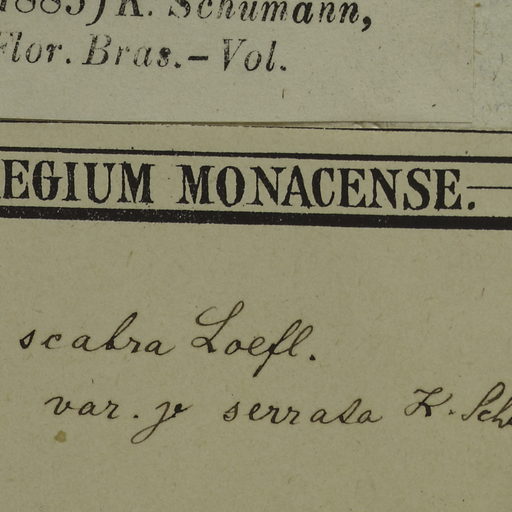 1885) K. Schumann,
Flor. Bras.– Vol.
EGIUM MONACENSE.
scabra Loefl.
var. γ serrata K. Sch